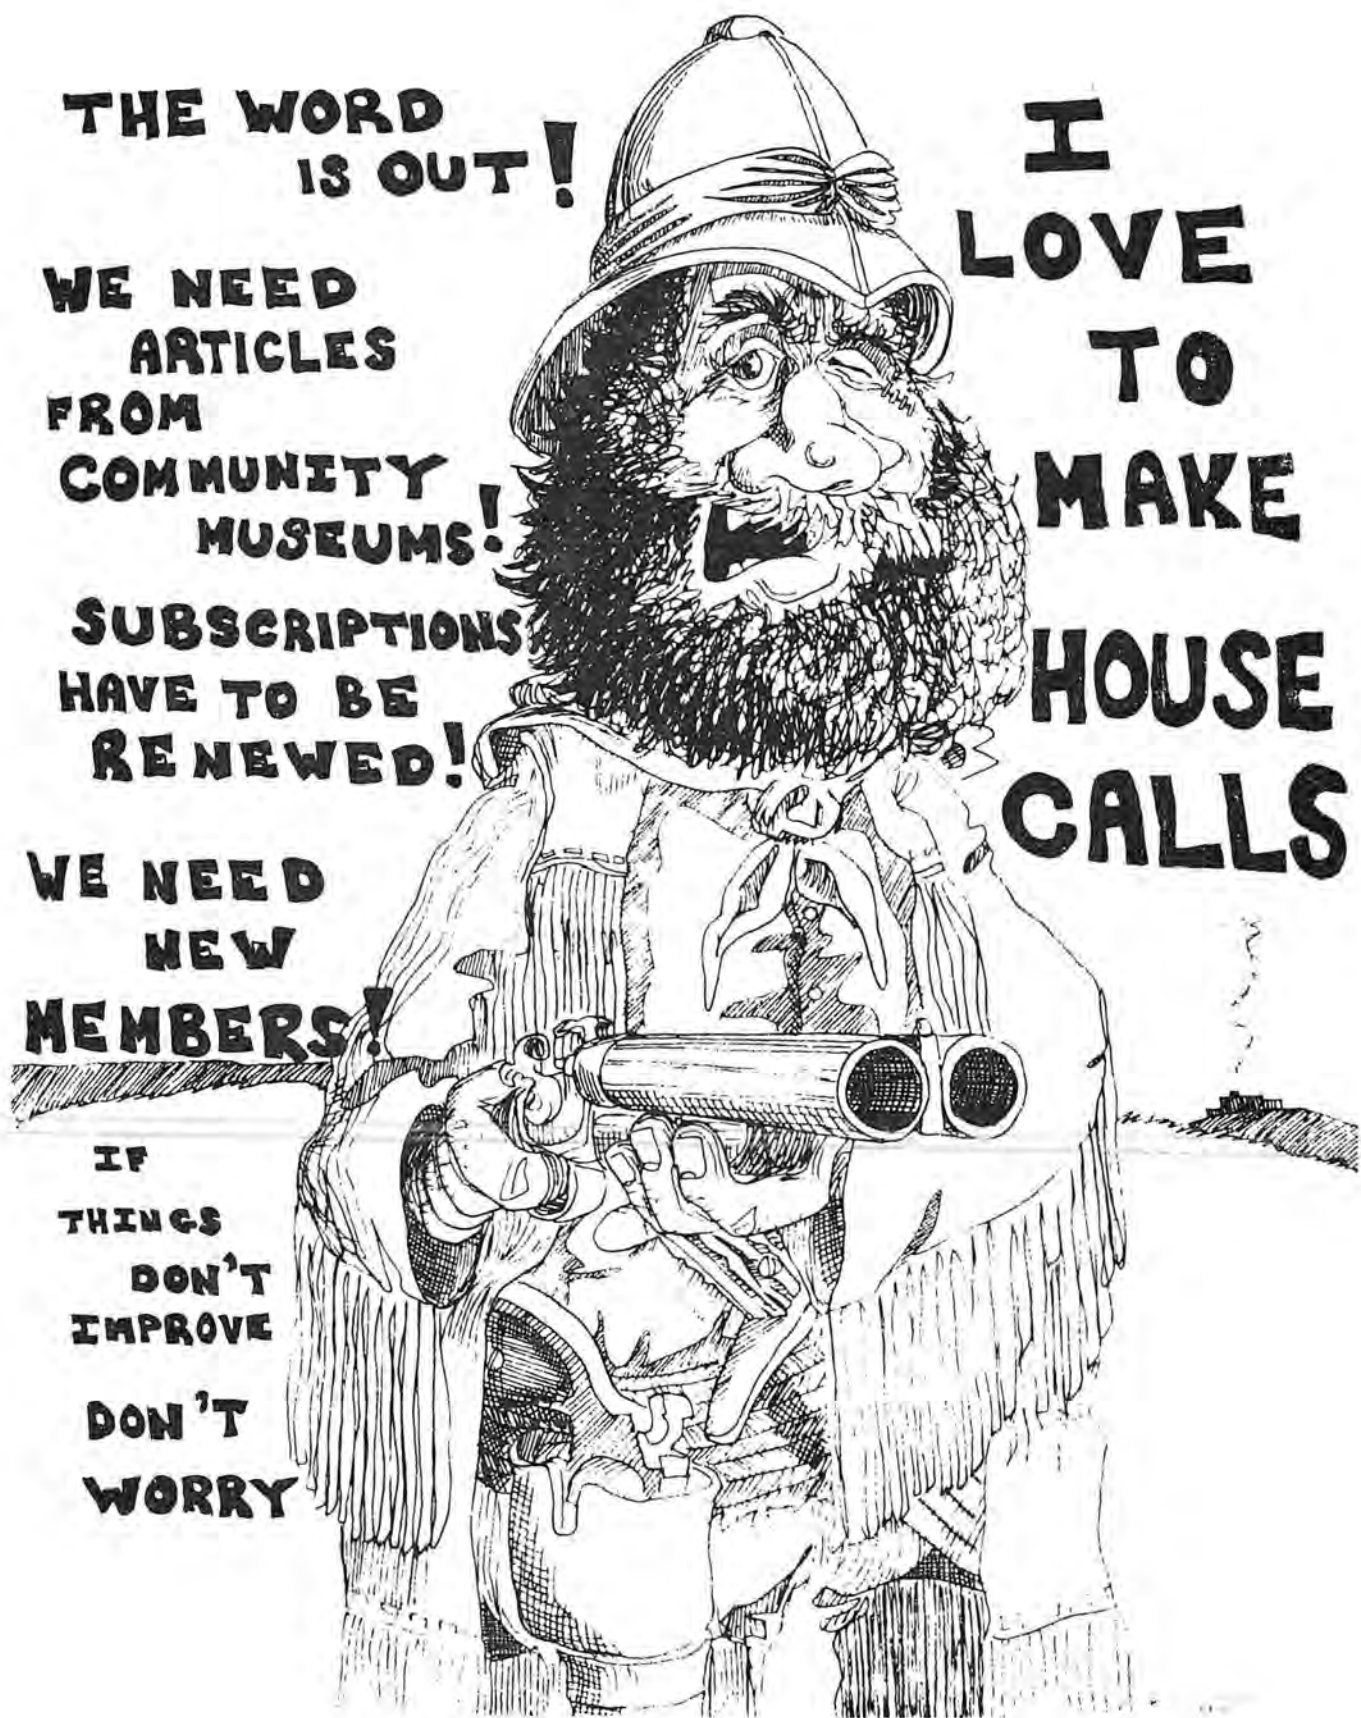 THE WORD
IS OUT!
WE NEED
ARTICLES
FROM
COMMUNITY
MUSEUMS!
SUBSCRIPTIONS
HAVE TO BE
RENEWED!
WE NEED
NEW
MEMBERS!
IF
THINGS
DON'T
IMPROVE
DON'T
WORRY
I
LOVE
TO
MAKE
HOUSE
CALLS